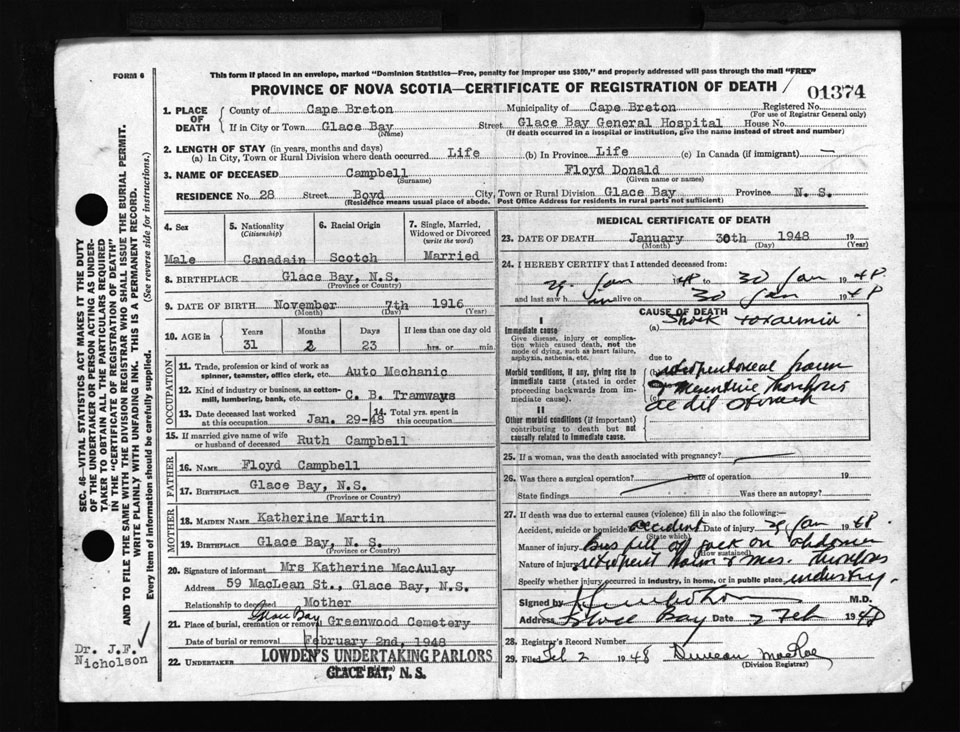 FORM 6
This form if placed in an envelope, marked "Dominion Statistics—Free, penalty for improper use $300," and properly addressed will pass through the mail "FREE"
PROVINCE OF NOVA SCOTIA—CERTIFICATE OF REGISTRATION OF DEATH / 01374
1. PLACE OF DEATH
County of Cape Breton Municipality of Cape Breton Registered No.
(For use of Registrar General only)
If in City or Town Glace Bay Street Glace Bay General Hospital House No.
(Name) (If death occurred in a hospital or institution, give the name instead of street and number)
2. LENGTH OF STAY (in years, months and days)
(a) In City, Town or Rural Division where death occurred Life (b) In Province Life (c) In Canada (if immigrant) —
3. NAME OF DECEASED Campbell Floyd Donald
(Surname) (Given name or names)
RESIDENCE No. 28 Street Boyd City, Town or Rural Division Glace Bay Province N. S.
(Residence means usual place of abode. Post Office Address for residents in rural parts not sufficient)
4. Sex 5. Nationality (Citizenship) 6. Racial Origin 7. Single, Married, Widowed or Divorced (write the word)
Male Canadain Scotch Married
8. BIRTHPLACE Glace Bay, N.S.
(Province or Country)
9. DATE OF BIRTH November 7th 1916
(Month) (Day) (Year)
10. AGE in Years Months Days If less than one day old
31 2 23 hrs. or min.
OCCUPATION
11. Trade, profession or kind of work as spinner, teamster, office clerk, etc. Auto Mechanic
12. Kind of industry or business, as cotton-mill, lumbering, bank, etc. C. B. Tramways
13. Date deceased last worked at this occupation Jan. 29-48 14. Total yrs. spent in this occupation
15. If married give name of wife or husband of deceased Ruth Campbell
FATHER
16. NAME Floyd Campbell
17. BIRTHPLACE Glace Bay, N.S.
(Province or Country)
MOTHER
18. MAIDEN NAME Katherine Martin
19. BIRTHPLACE Glace Bay, N. S.
(Province or Country)
20. Signature of informant Mrs Katherine MacAulay
Address 59 MacLean St., Glace Bay, N.S.
Relationship to deceased Mother
Glace Bay
21. Place of burial, cremation or removal Greenwood Cemetery
Date of burial or removal February 2nd, 1948
22. UNDERTAKER LOWDEN'S UNDERTAKING PARLORS
GLACE BAY, N. S.
MEDICAL CERTIFICATE OF DEATH
23. DATE OF DEATH January 30th 1948 19
(Month) (Day) (Year)
24. I HEREBY CERTIFY that I attended deceased from:
29 Jan 48 to 30 Jan 1948
and last saw h im alive on 30 Jan 1948
CAUSE OF DEATH
I
Immediate cause
Give disease, injury or complication which caused death, not the mode of dying, such as heart failure, asphyxia, asthenia, etc.
(a) Shock toxaemia
due to
Morbid conditions, if any, giving rise to immediate cause (stated in order proceeding backwards from immediate cause).
(b)
(c)
II
Other morbid conditions (if important) contributing to death but not causally related to immediate cause.
25. If a woman, was the death associated with pregnancy?
26. Was there a surgical operation? Date of operation 19
State findings Was there an autopsy?
27. If death was due to external causes (violence) fill in also the following:—
Accident, suicide or homicide? accident Date of injury 29 Jan 1948.
(State which)
Manner of injury bus fell off jack on abdomen
(How sustained)
Nature of injury
Specify whether injury occurred in industry, in home, or in public place industry.
Signed by M.D.
Address Glace Bay Date 2 Feb 1948
28. Registrar's Record Number
29. Filed Feb 2 1948 Duncan MacRae
(Division Registrar)
SEC. 46—VITAL STATISTICS ACT MAKES IT THE DUTY OF THE UNDERTAKER OR PERSON ACTING AS UNDERTAKER TO OBTAIN ALL THE PARTICULARS REQUIRED IN THE "CERTIFICATE OF REGISTRATION OF DEATH" AND TO FILE THE SAME WITH THE DIVISION REGISTRAR WHO SHALL ISSUE THE BURIAL PERMIT.
WRITE PLAINLY WITH UNFADING INK. THIS IS A PERMANENT RECORD.
Every item of information should be carefully supplied. (See reverse side for instructions.)
Dr. J.F.
Nicholson